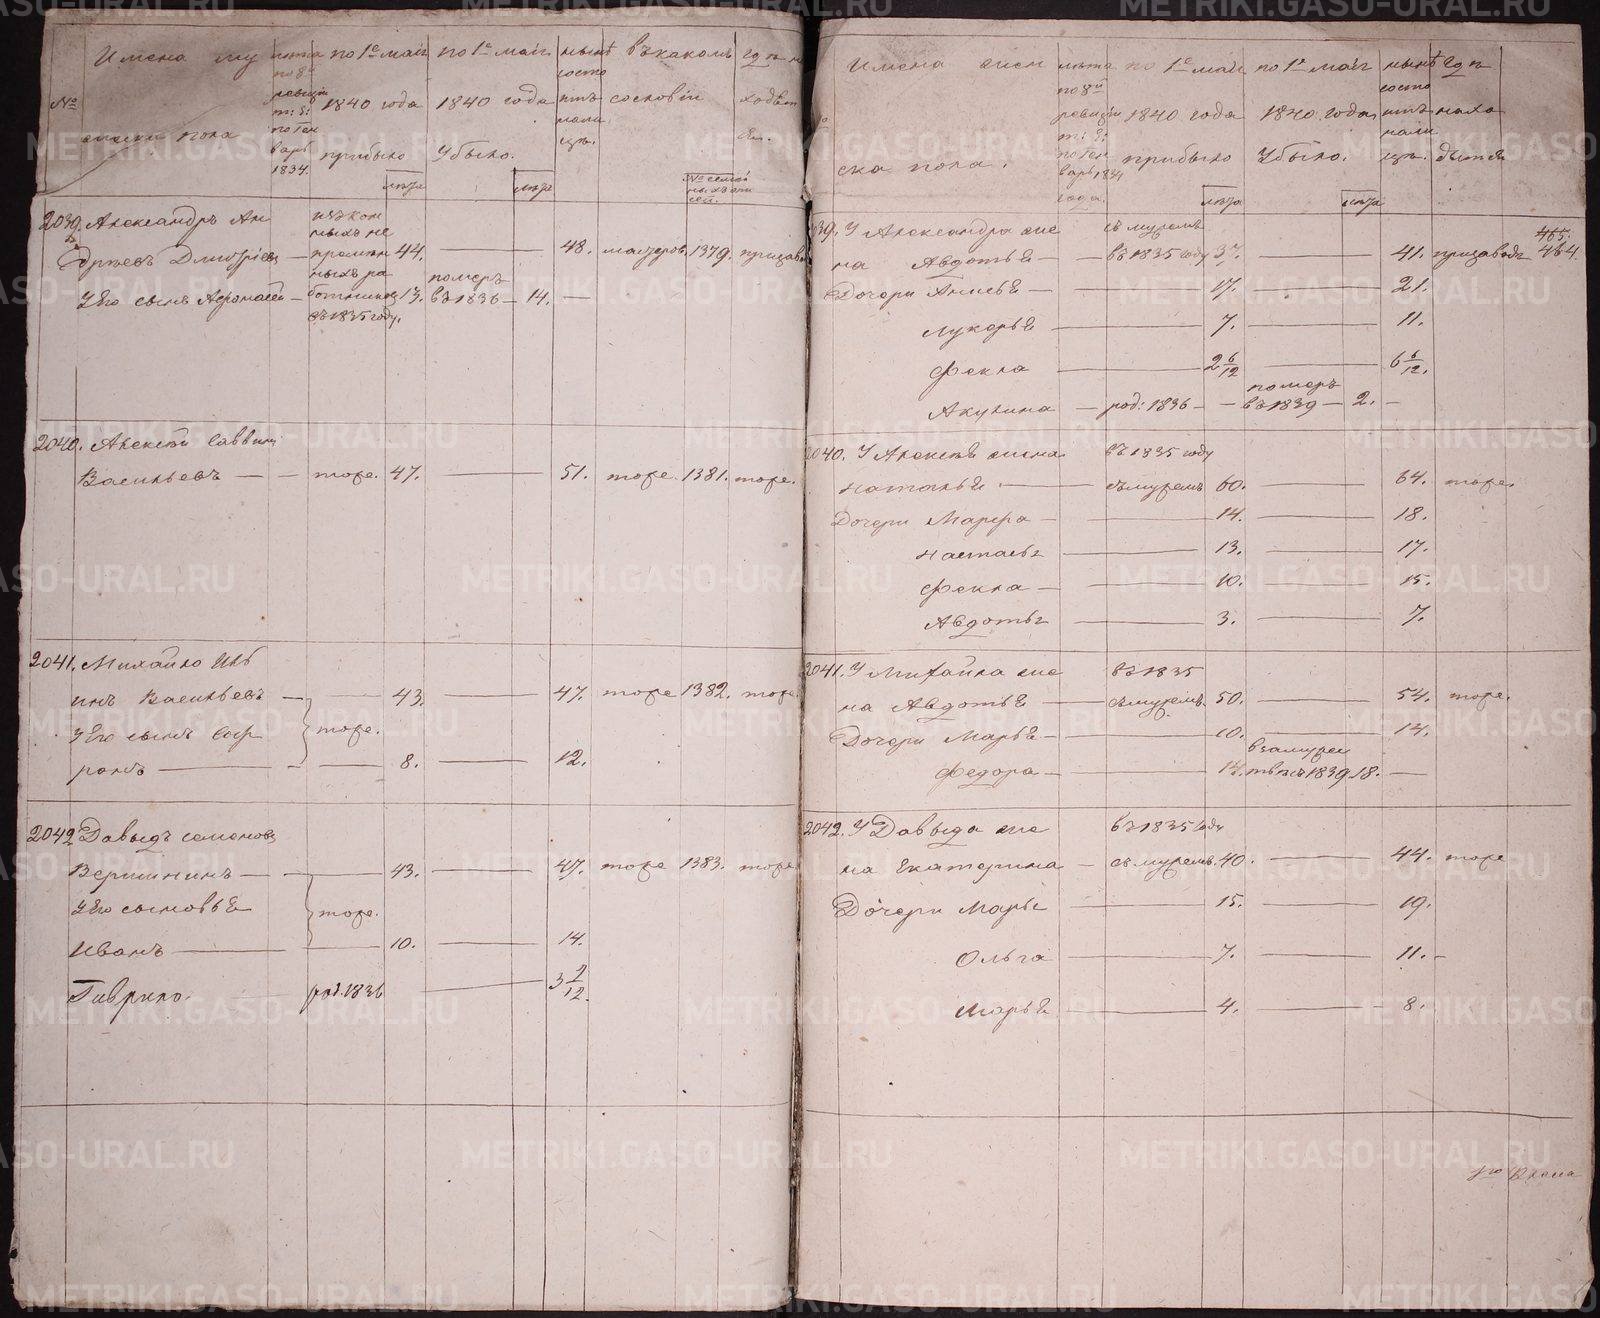 №
Имена му
жеска пола
лѣта по 8й ревизіи т: е: по Генварь 1834.
по 1е маія 1840 года прибыло
лѣта
по 1е маія 1840 года Убыло.
лѣта
нынѣ состоитъ налицъ.
въ какомъ сословіи
№ семейныхъ
гдѣ находят
2039. Александръ Ан
дрѣевъ Дмитріевъ — изъ конныхъ непремѣнныхъ работниковъ въ 1835 году. 44. — 48. мастеров. 1379. при завод
Уего сынъ Афонасей — 13. померъ въ 1836 — 14. —
2040. Алексѣй Саввинъ
Васильевъ — — тоже. 47. — 51. тоже. 1381. тоже.
2041. Михайло Ив
инъ Васильевъ — 43. — 47. тоже 1382. тоже
Уего сынъ Соф
ронъ — тоже. 8. — 12.
2042 Давыдъ Семеновъ
Вершининъ — 43. — 47. тоже 1383. тоже
Уего сыновья тоже.
Иванъ — 10. — 14.
Гаврило. род. 1836 — 3 2/12.
Имена жен
ска пола.
лѣта по 8й ревизіи т: е: по Генварь 1834 года.
по 1е маія 1840 года прибыло
лѣта
по 1е маія 1840 года, Убыло.
лѣта
нынѣ состоитъ налицъ.
гдѣ находятся
2039. У Александра же
на Авдотья — съ мужемъ въ 1835 году 37. — 41. при заводѣ 465. 464.
Дочери Анисья — 17. — 21.
Лукерья — 7. — 11.
Фекла — 2 6/12 — 6 6/12.
Акулина — род: 1836 — — померъ въ 1839 — 2. —
2040. У Алексѣя жена въ 1835 году
Наталья — съ мужемъ 60. — 64. тоже.
Дочери Марфа — 14. — 18.
Настасья — 13. — 17.
Фекла — 10. — 15.
Авдотья — 3. — 7.
2041. У Михайла же въ 1835
на Авдотья — съ мужемъ 50. — 54. тоже.
Дочери Марья — 10. — 14.
Федора — 14. въ замужестве въ 1839. 18. —
2042. У Давыда же въ 1835 году
на Екатерина — съ мужемъ. 40. — 44. тоже
Дочери Марья — 15. — 19.
Ольга — 7. — 11. —
Марья — 4. — 8.
METRIKI.GASO-URAL.RU